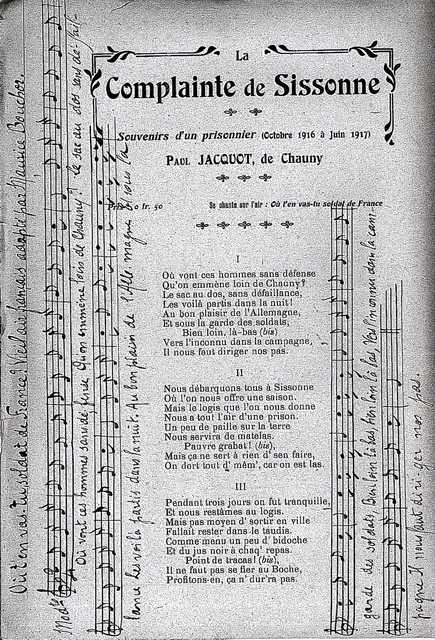 La
Complainte de Sissonne
Souvenirs d'un prisonnier (Octobre 1916 à Juin 1917)
PAUL JACQUOT, de Chauny
0 fr. 50
Se chante sur l'air : Où t'en vas-tu soldat de France
I
Où vont ces hommes sans défense
Qu'on emmène loin de Chauny?
Le sac au dos, sans défaillance,
Les voilà partis dans la nuit!
Au bon plaisir de l'Allemagne,
Et sous la garde des soldats,
Bien loin, là-bas (bis)
Vers l'inconnu dans la campagne,
Il nous faut diriger nos pas.
II
Nous débarquons tous à Sissonne
Où l'on nous offre une saison.
Mais le logis que l'on nous donne
Nous a tout l'air d'une prison.
Un peu de paille sur la terre
Nous servira de matelas.
Pauvre grabat! (bis),
Mais ça ne sert à rien d' s'en faire,
On dort tout d' mêm', car on est las.
III
Pendant trois jours on fut tranquille,
Et nous restâmes au logis.
Mais pas moyen d' sortir en ville
Fallait rester dans le taudis.
Comme menu un peu d' bidoche
Et du jus noir à chaq' repas.
Point de tracas! (bis),
Il ne faut pas se fier au Boche,
Profitons-en, ça n' dur'ra pas.
Où t'en vas-tu soldat de France? Vieil air français adapté par Maurice Bouchor
Modto
Où vont ces hommes sans défense Qu'on emmène loin de Chauny? Le sac au dos sans défail-
lance Les voilà partis dans la nuit. Au bon plaisir de l'Allemagne Et sous la
garde des soldats, Bien loin là bas bien loin là bas, Vers l'inconnu dans la cam-
pagne Il nous faut diri-ger nos pas.